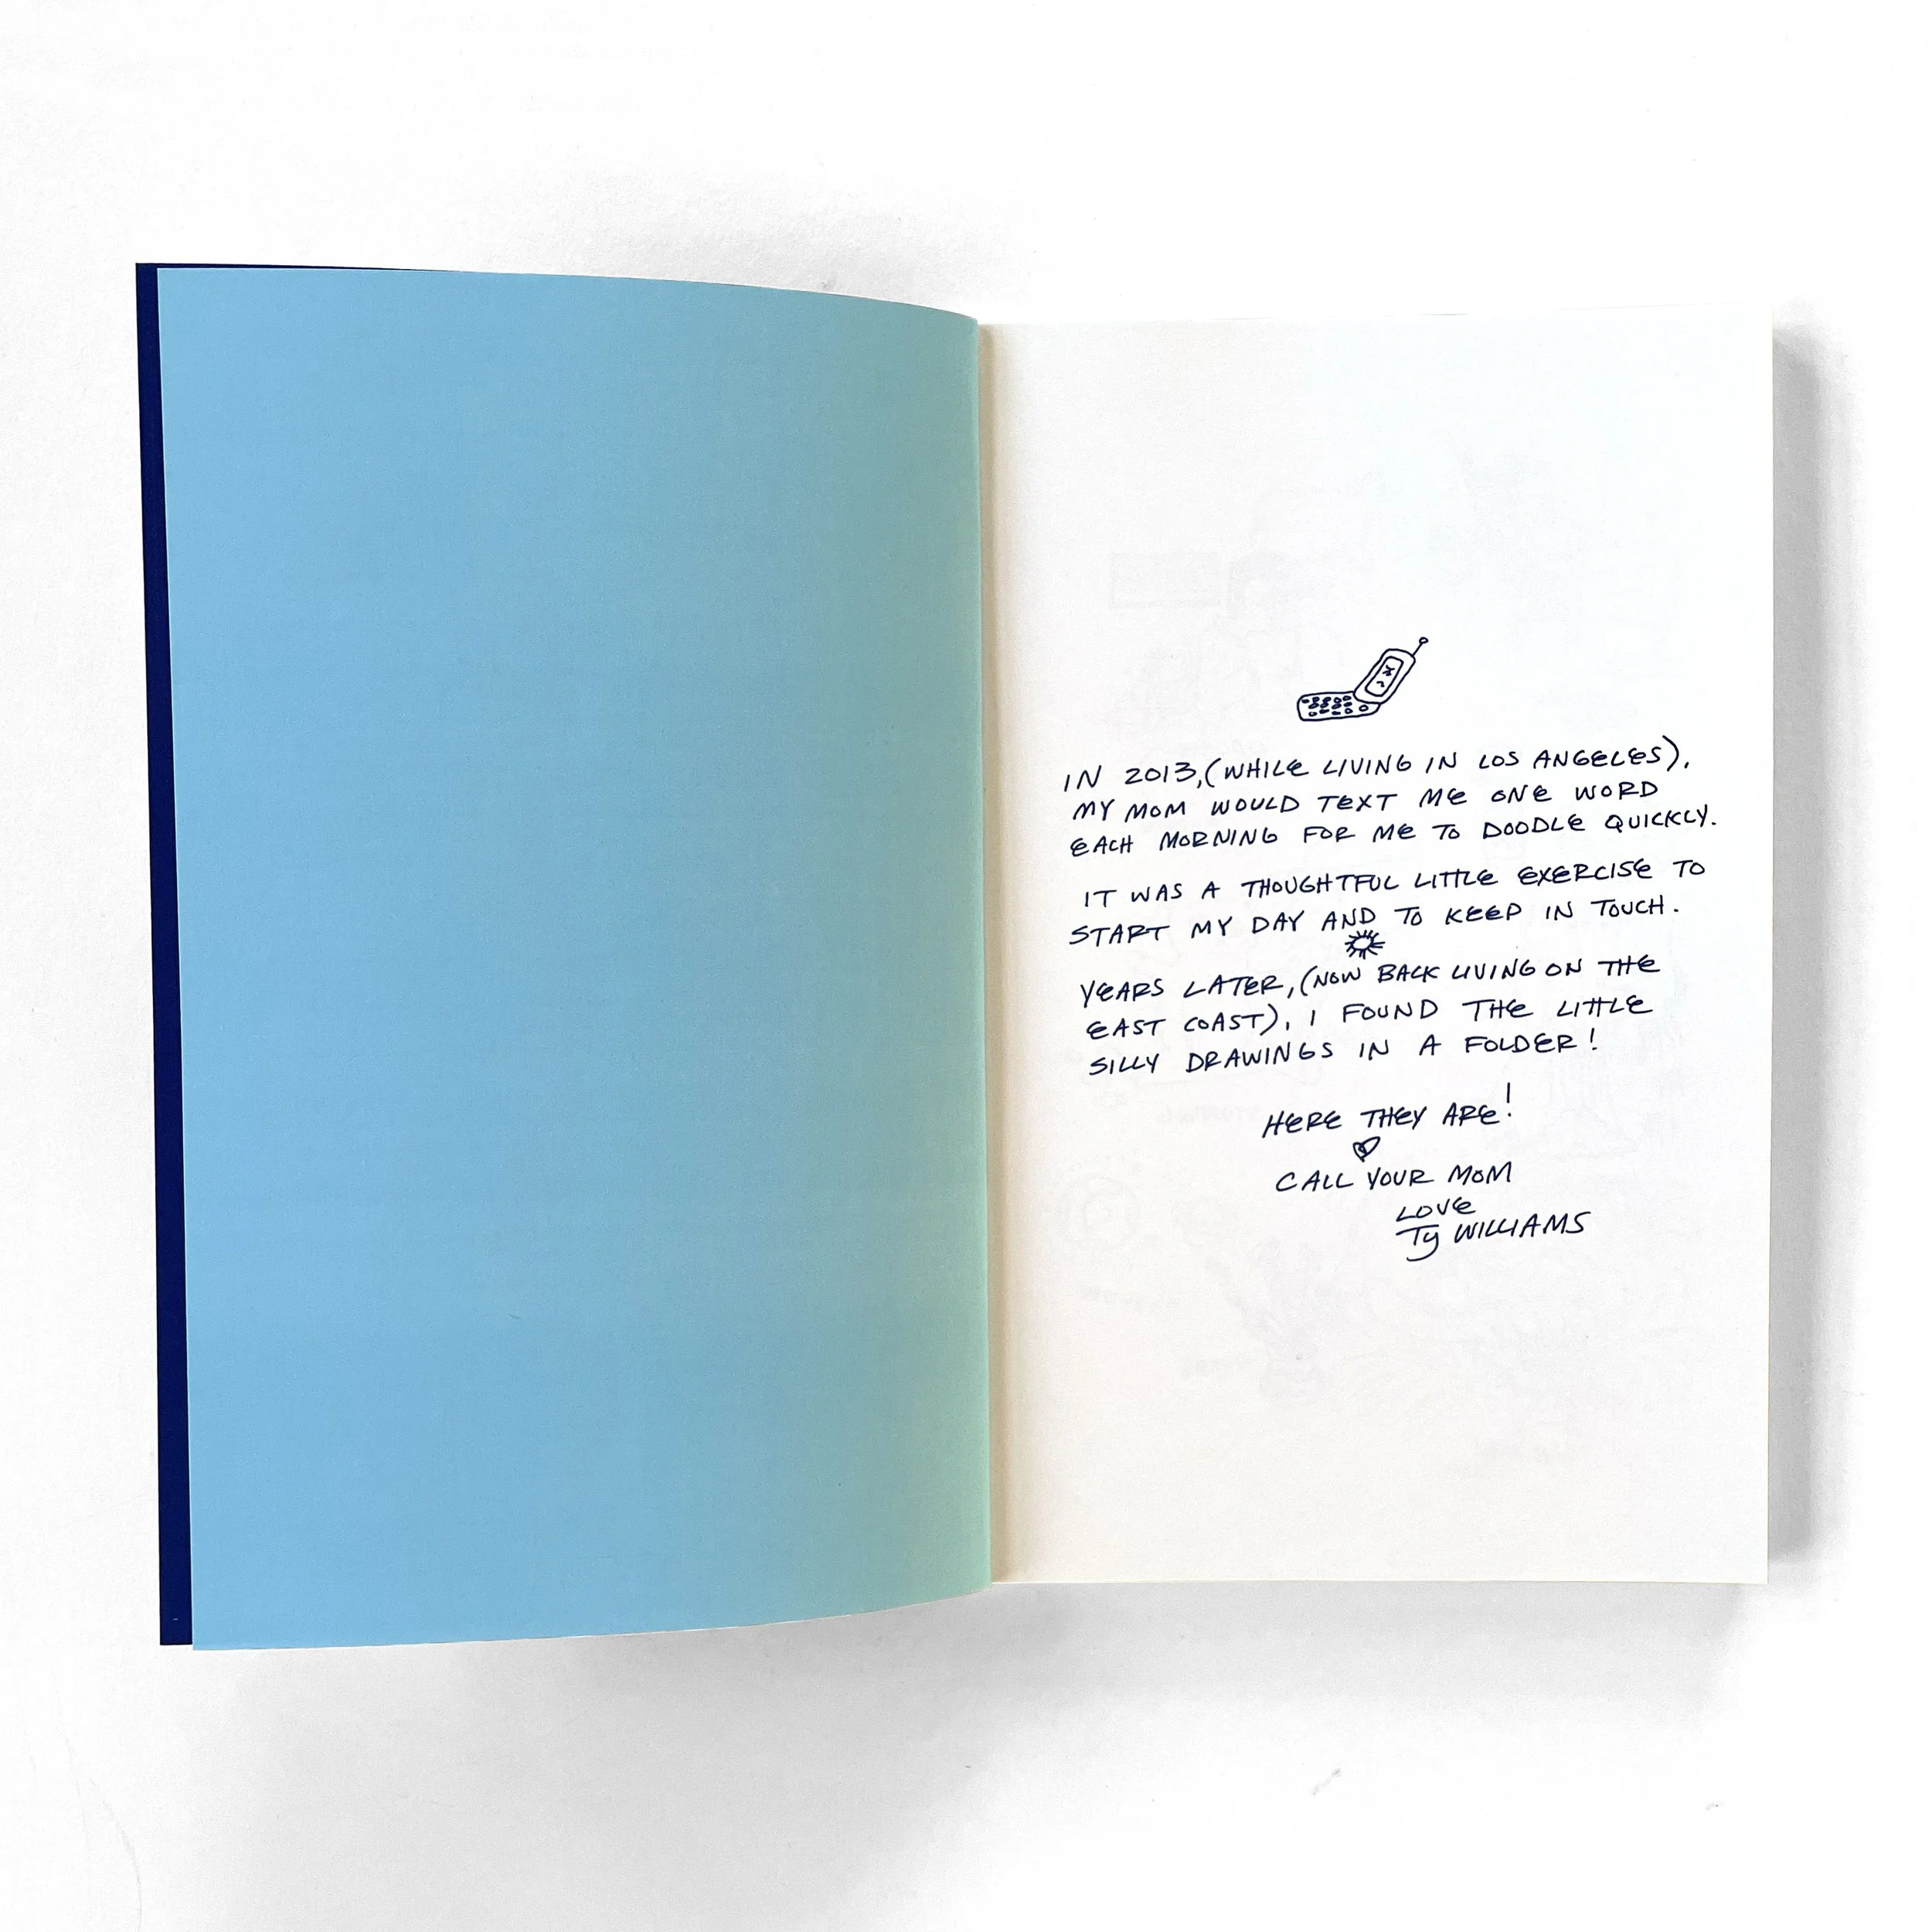 IN 2013,(WHILE LIVING IN LOS ANGELES),
MY MOM WOULD TEXT ME ONE WORD
EACH MORNING FOR ME TO DOODLE QUICKLY.
IT WAS A THOUGHTFUL LITTLE EXERCISE TO
START MY DAY AND TO KEEP IN TOUCH.
YEARS LATER,(NOW BACK LIVING ON THE
EAST COAST), I FOUND THE LITTLE
SILLY DRAWINGS IN A FOLDER!
HERE THEY ARE!
CALL YOUR MOM
LOVE
Ty WILLIAMS